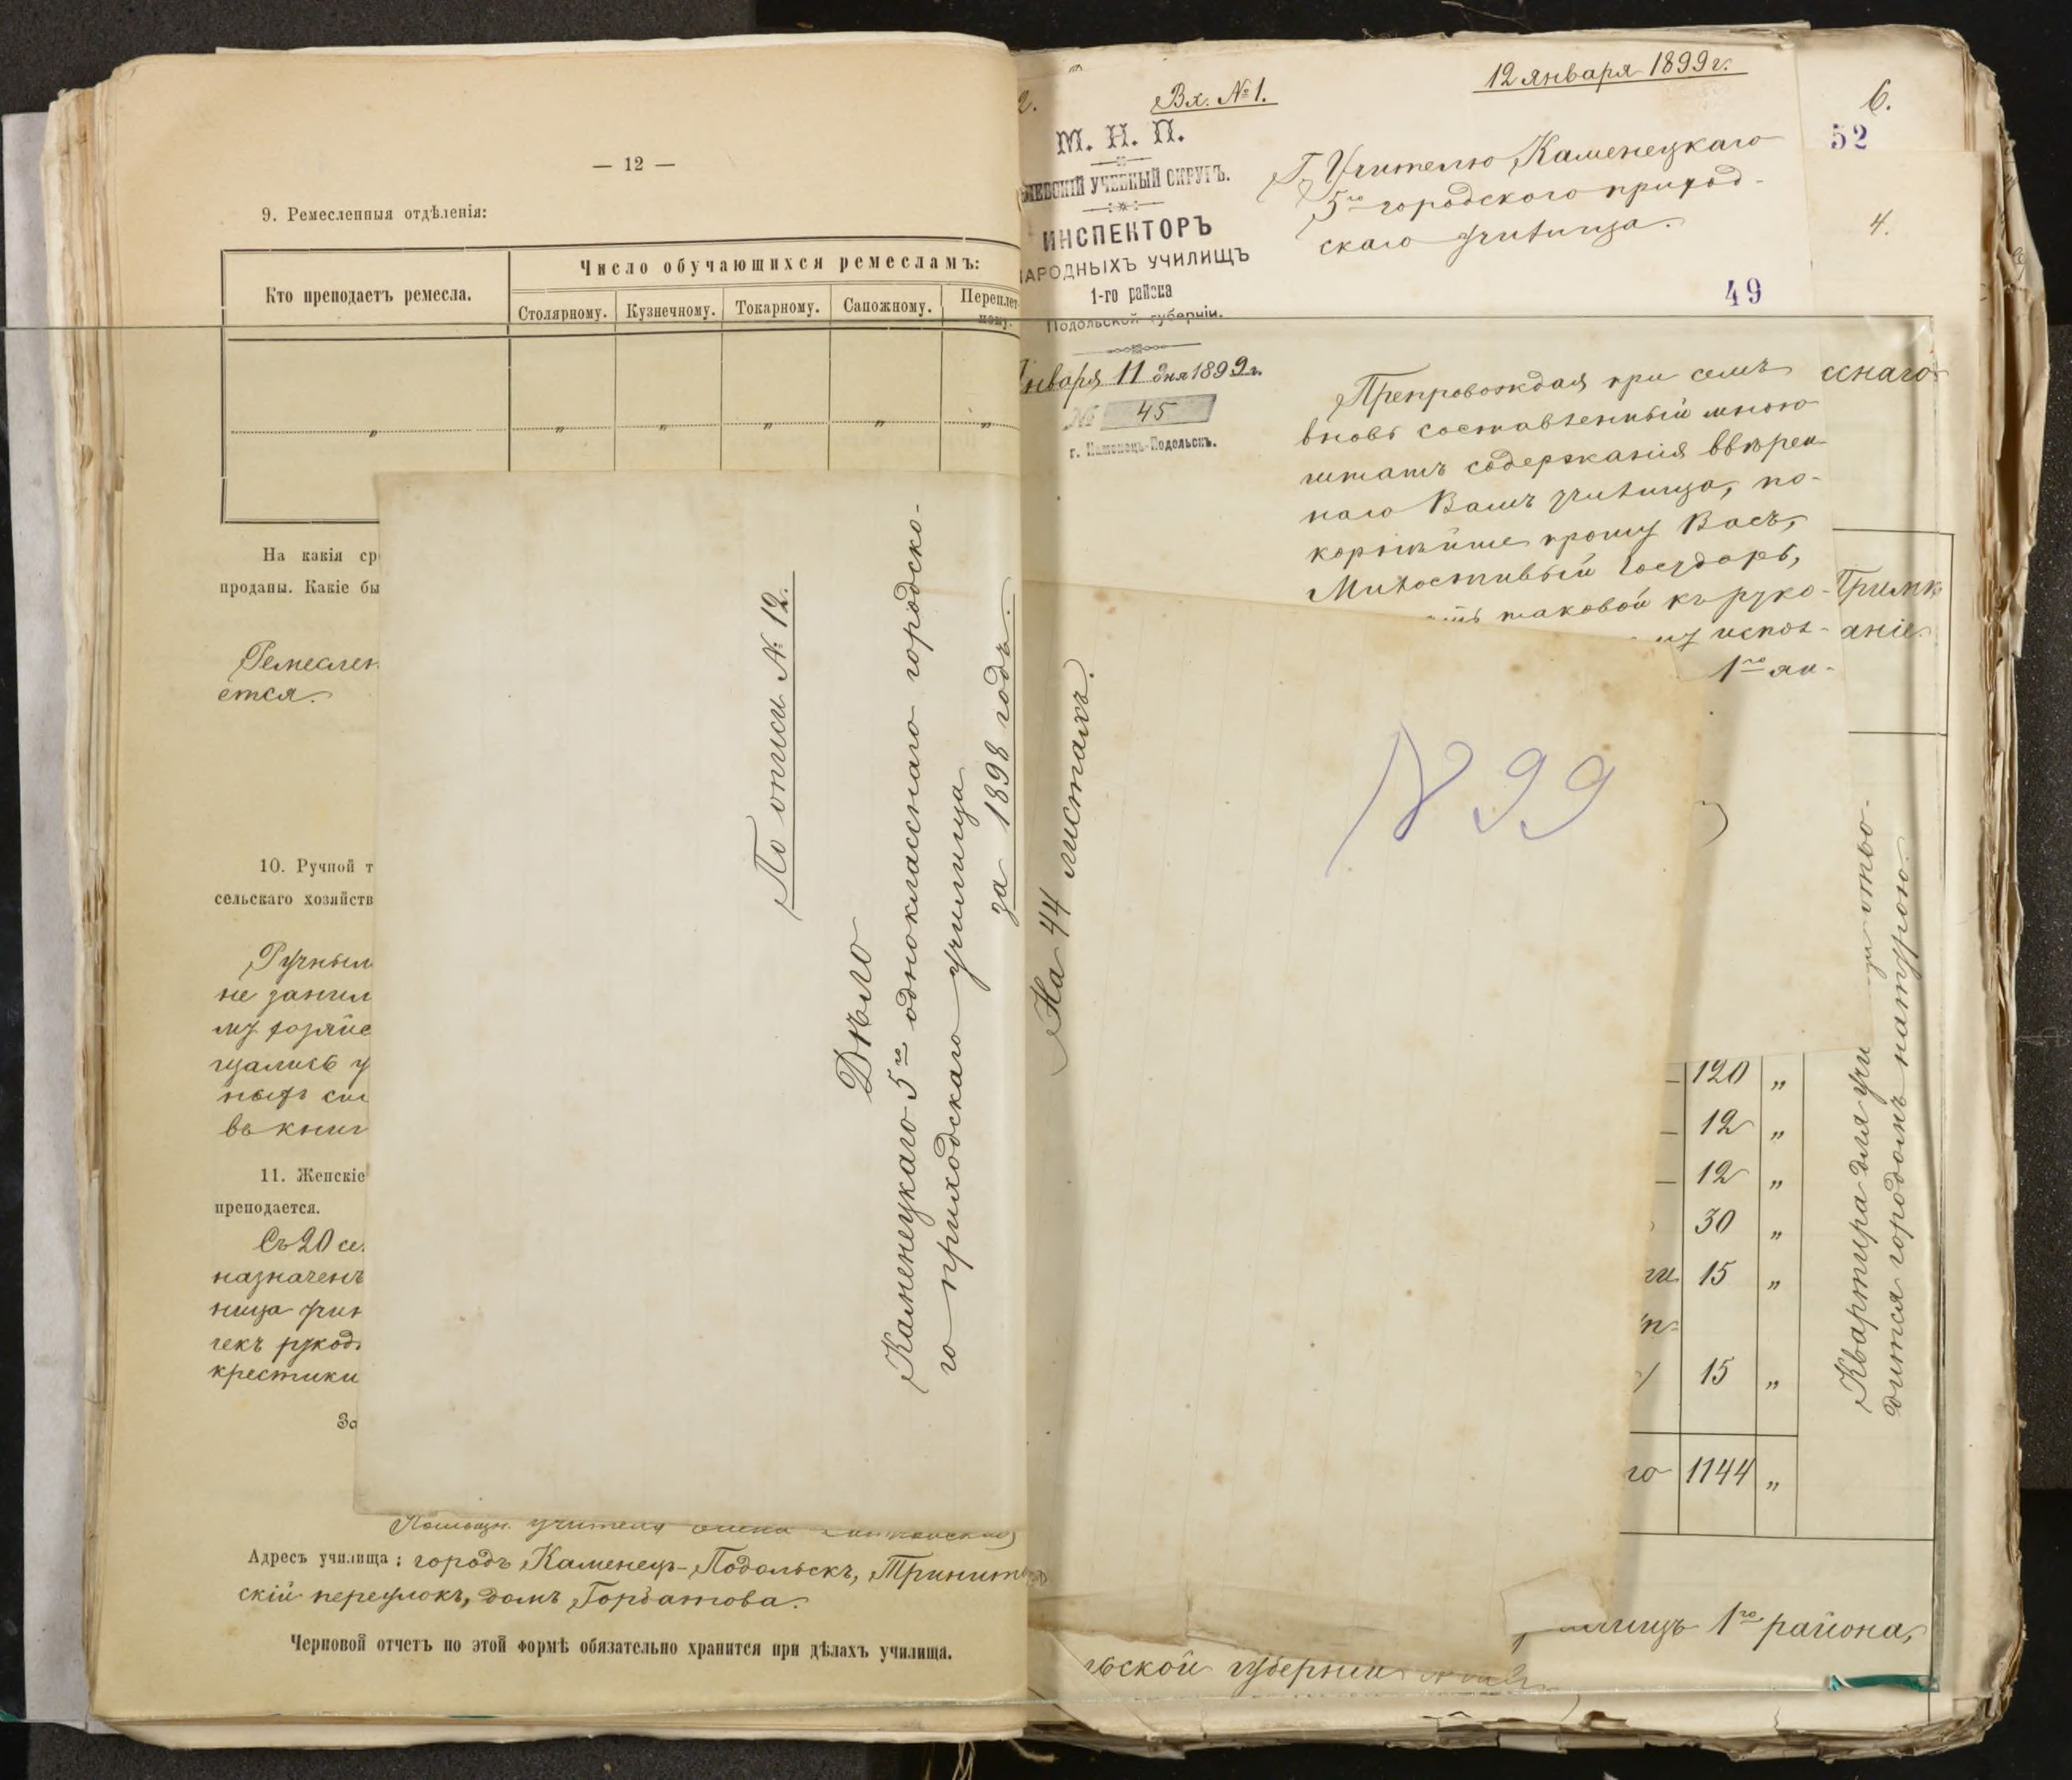 — 12 —
9. Ремесленныя отдѣленія:
Кто преподаетъ ремесла.
Число обучающихся ремесламъ:
Столярному. Кузнечному. Токарному. Сапожному. Переплет-
ному.
„ „ „ „ „ „
На какія ср
проданы. Какіе бы
Ремеслен
ется.
10. Ручной т
сельскаго хозяйств
Ручным
не заним
му хозяйс
щались у
ныхъ сп
въ книг
11. Женскіе
преподается.
Съ 20 се
назначен
ница учи
чекъ рукод
крестики
За
Адресъ училища: городъ Каменецъ-Подольскъ, Тринит
скій переулокъ, домъ Горбатова.
Черновой отчетъ по этой формѣ обязательно хранится при дѣлахъ училища.
По описи № 12.
Дѣло
Каменецкаго 5го однокласснаго городско-
го приходскаго училища
за 1898 годъ.
На 44 листахъ.
N 99
2.
Вх. № 1.
12 января 1899 г.
М. Н. П.
ІЕВСКІЙ УЧЕБНЫЙ ОКРУГЪ.
ИНСПЕКТОРЪ
НАРОДНЫХЪ УЧИЛИЩЪ
1-го района
Подольской губерніи.
Января 11 дня 1899 г.
№ 45
г. Каменецъ-Подольскъ.
Г. Учителю Каменецкаго
5го городского приход-
скаго училища.
49
Препровождая при семъ
вновь составленный мною
штатъ содержанія ввѣрен-
наго Вамъ училища, по-
корнѣйше прошу Васъ,
Милостивый Государь,
таковой къ руко-
испол-
1го ян-
6.
52
4.
снаго
Примѣ
аніе.
120 „
12 „
12 „
30 „
15 „
15 „
го 1144 „
Квартира для учи
дится городомъ натурою.
1го района,
ьской губерніи